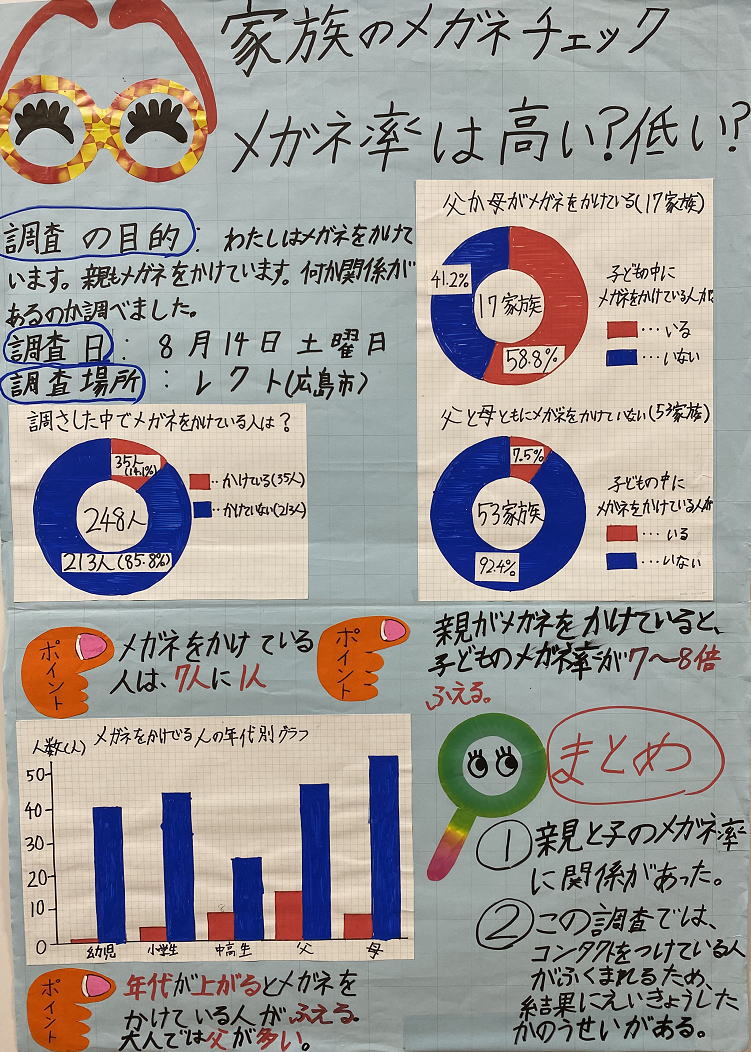 家族のメガネチェック
メガネ率は高い？低い？
調査の目的：わたしはメガネをかけて
います。親もメガネをかけています。何か関係が
あるのか調べました。
調査日：8月14日土曜日
調査場所：レクト(広島市)
調さした中でメガネをかけている人は？
35人
(14.1%)
248人
213人(85.8%)
‥かけている(35人)
‥かけていない(213人)
父か母がメガネをかけている(17家族)
41.2%
17家族
58.8%
子どもの中に
メガネをかけている人が
…いる
…いない
父と母ともにメガネをかけていない(53家族)
7.5%
53家族
92.4%
子どもの中に
メガネをかけている人が
…いる
…いない
ポイント
メガネをかけている
人は、7人に1人
ポイント
親がメガネをかけていると、
子どものメガネ率が7〜8倍
ふえる。
人数(人)
メガネをかけてる人の年代別グラフ
50
40
30
20
10
0
幼児
小学生
中高生
父
母
ポイント
年代が上がるとメガネを
かけている人がふえる。
大人では父が多い。
まとめ
① 親と子のメガネ率
に関係があった。
② この調査では、
コンタクトをつけている人
がふくまれるため、
結果にえいきょうした
かのうせいがある。